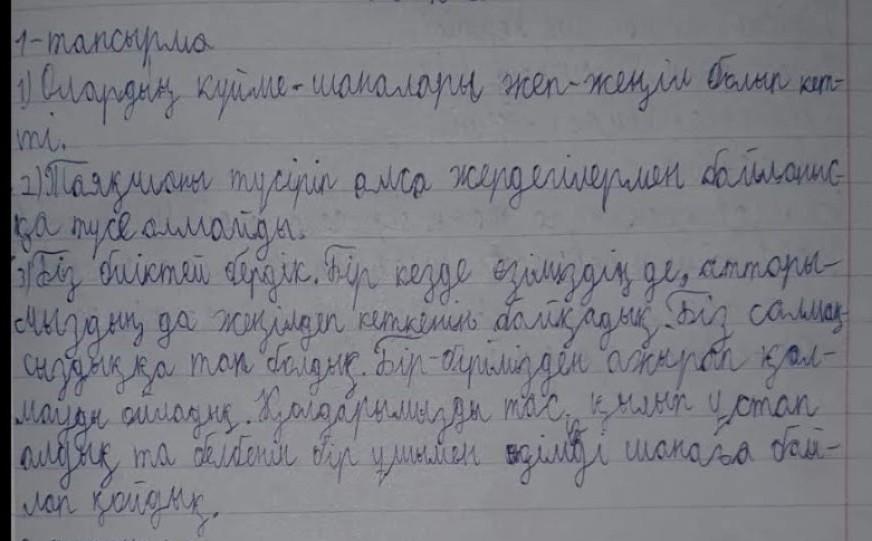 1-тапсырма
1) Олардың күйме-шаналары жеп-жеңіл болып кет-
ті.
2) Таяқшаны түсіріп алса жердегілермен байланыс-
қа түсе алмайды.
3) Біз биіктей бердік. Бір кезде өзіміздің де, аттары-
мыздың да жеңілдеп кеткенін байқадық. Біз салмақ-
сыздыққа тап болдық. Бір-бірімізден ажырап қал-
мауды ойладық. Қолдарымызды тас қылып ұстап
алдық та белбеуін бір ұшымен өзімізді шанаға бай-
лап қойдық.